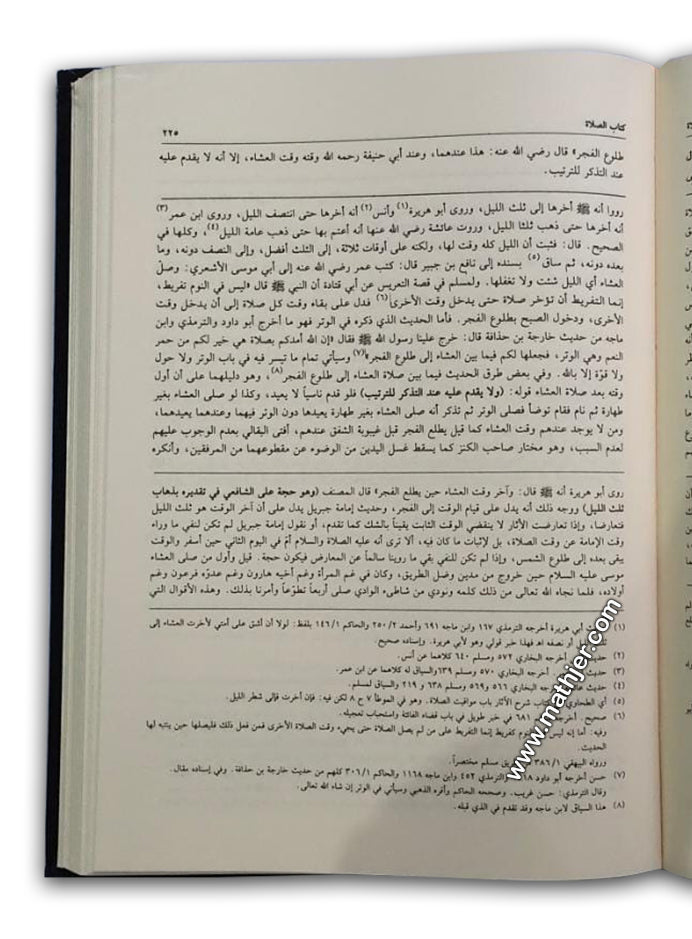 كتاب الصلاة
٢٢٥
طلوع الفجر» قال رضي الله عنه: هذا عندهما، وعند أبي حنيفة رحمه الله وقته وقت العشاء، إلا أنه لا يقدم عليه
عند التذكر للترتيب.
رووا أنه ﷺ أخرها إلى ثلث الليل، وروى أبو هريرة(١) وأنس(٢) أنه أخرها حتى انتصف الليل، وروى ابن عمر(٣)
أنه أخرها حتى ذهب ثلثا الليل، وروت عائشة رضي الله عنها أنه أعتم بها حتى ذهب عامة الليل(٤)، وكلها في
الصحيح. قال: فثبت أن الليل كله وقت لها، ولكنه على أوقات ثلاثة، إلى الثلث أفضل، وإلى النصف دونه، وما
بعده دونه، ثم ساق(٥) بسنده إلى نافع بن جبير قال: كتب عمر رضي الله عنه إلى أبي موسى الأشعري: وصلّ
العشاء أي الليل شئت ولا تغفلها. ولمسلم في قصة التعريس عن أبي قتادة أن النبي ﷺ قال «ليس في النوم تفريط،
إنما التفريط أن تؤخر صلاة حتى يدخل وقت الأخرى»(٦) فدل على بقاء وقت كل صلاة إلى أن يدخل وقت
الأخرى، ودخول الصبح بطلوع الفجر. فأما الحديث الذي ذكره في الوتر فهو ما أخرج أبو داود والترمذي وابن
ماجه من حديث خارجة بن حذافة قال: خرج علينا رسول الله ﷺ فقال «إن الله أمدكم بصلاة هي خير لكم من حمر
النعم وهي الوتر، فجعلها لكم فيما بين العشاء إلى طلوع الفجر»(٧) وسيأتي تمام ما تيسر فيه في باب الوتر ولا حول
ولا قوّة إلا بالله. وفي بعض طرق الحديث فيما بين صلاة العشاء إلى طلوع الفجر(٨)، وهو دليلهما على أن أول
وقته بعد صلاة العشاء قوله: (ولا يقدم عليه عند التذكر للترتيب) فلو قدم ناسياً لا يعيد، وكذا لو صلى العشاء بغير
طهارة ثم نام فقام توضأ فصلى الوتر ثم تذكر أنه صلى العشاء بغير طهارة يعيدها دون الوتر فيهما وعندهما يعيدهما،
ومن لا يوجد عندهم وقت العشاء كما قيل يطلع الفجر قبل غيبوبة الشفق عندهم، أفتى البقالي بعدم الوجوب عليهم
لعدم السبب، وهو مختار صاحب الكنز كما يسقط غسل اليدين من الوضوء عن مقطوعهما من المرفقين، وأنكره
روى أبو هريرة أنه ﷺ قال: وآخر وقت العشاء حين يطلع الفجر» قال المصنف (وهو حجة على الشافعي في تقديره بذهاب
ثلث الليل) ووجه ذلك أنه يدل على قيام الوقت إلى الفجر، وحديث إمامة جبريل يدل على أن آخر الوقت هو ثلث الليل
فتعارضا، وإذا تعارضت الآثار لا ينقضي الوقت الثابت يقيناً بالشك كما تقدم، أو نقول إمامة جبريل لم تكن لنفي ما وراء
وقت الإمامة عن وقت الصلاة، بل لإثبات ما كان فيه، ألا ترى أنه عليه الصلاة والسلام أمّ في اليوم الثاني حين أسفر والوقت
يبقى بعده إلى طلوع الشمس، وإذا لم تكن للنفي بقي ما روينا سالماً عن المعارض فيكون حجة. قيل وأول من صلى العشاء
موسى عليه السلام حين خروج من مدين وضل الطريق، وكان في غم المرأة وغم أخيه هارون وغم عدوّه فرعون وغم
أولاده، فلما نجاه الله تعالى من ذلك كلمه ونودي من شاطىء الوادي صلى أربعاً تطوّعاً وأمرنا بذلك. وهذه الأقوال التي
(١) أبي هريرة أخرجه الترمذي ١٦٧ وابن ماجه ٦٩١ وأحمد ٢/ ٢٥٠ والحاكم ١/ ١٤٦ بلفظ: لولا أن أشق على أمتي لأخرت العشاء إلى
الليل أو نصفه اهـ فهذا خبر قولي وهو لأبي هريرة. وإسناده صحيح.
(٢) أخرجه البخاري ٥٧٢ ومسلم ٦٤٠ كلاهما عن أنس.
(٣) أخرجه البخاري ٥٧٠ ومسلم ٦٣٩ والسياق له كلاهما عن ابن عمر.
(٤) حديث البخاري ٥٦٦ و٥٦٩ ومسلم ٦٣٨ و ٢١٩ والسياق لمسلم.
(٥) أي الطحاوي كتاب شرح الآثار باب مواقيت الصلاة. وهو في الموطأ ٧ ح ٨ لكن فيه: فإن أخرت فإلى شطر الليل.
(٦) صحيح. ٦٨١ في خبر طويل في باب قضاء الفائتة واستحباب تعجيله.
وفيه: أما إنه ليس تفريط إنما التفريط على من لم يصل الصلاة حتى يجيء وقت الصلاة الأخرى فمن فعل ذلك فليصلها حين ينتبه لها
الحديث.
ورواه البيهقي ١/ ٣٨٦ مسلم مختصراً.
(٧) حسن أخرجه أبو داود الترمذي ٤٥٢ وابن ماجه ١١٦٨ والحاكم ١/ ٣٠٦ كلهم من حديث خارجة بن حذافة. وفي إسناده مقال.
وقال الترمذي: حسن غريب. وصححه الحاكم وأقره الذهبي وسيأتي في الوتر إن شاء الله تعالى.
(٨) هذا السياق لابن ماجه وقد تقدم في الذي قبله.
www.mathjer.com